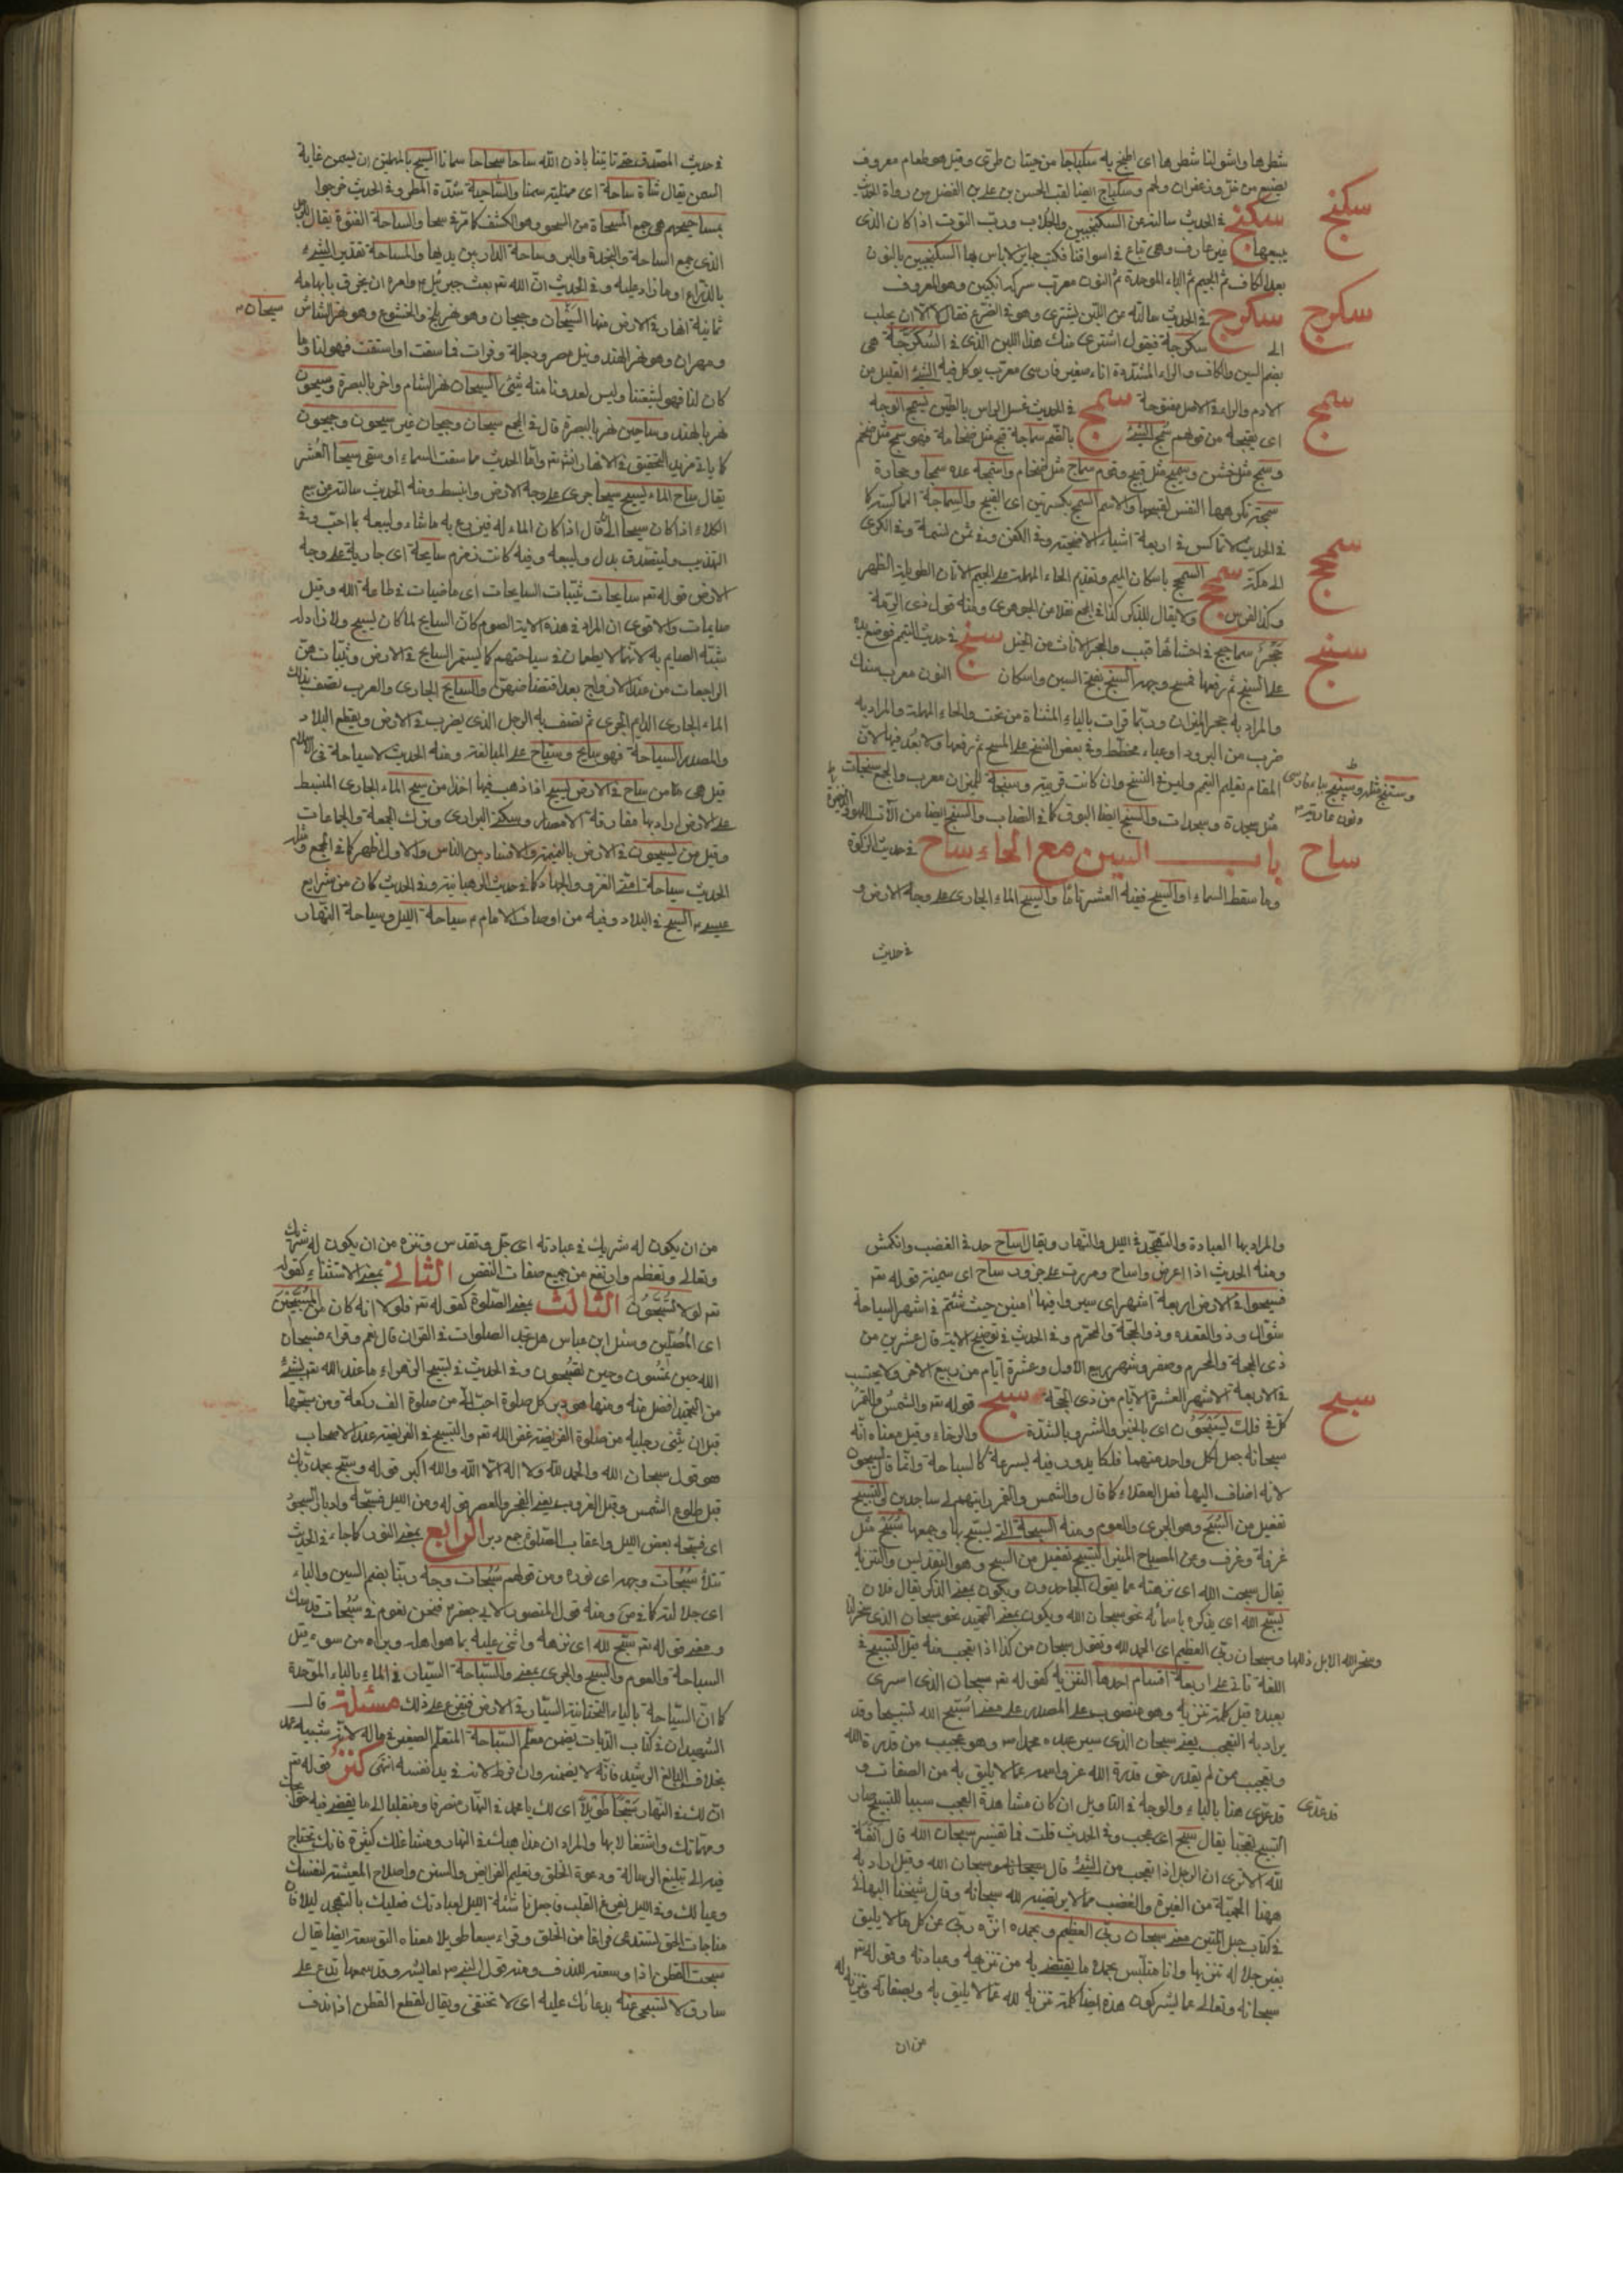 شطرها واشو لنا شطرها اى اطبخ به سكباجا من حيتان طرى وقيل هو طعام معروف
يصنع من خل وزعفران ولحم وسكباج ايضا لقب الحسن بن على بن الفضل من رواة الحديث
سكنج
سكنج فى الحديث سالته عن السكنجبين والجلاب ورب التوت اذا كان الذى
يبيعها غير عارف وهى تباع فى اسواقنا فكتب جايز لا باس بها السكنجبين بالنون
بعد الكاف ثم الجيم ثم الباء الموحدة ثم النون معرب سركه انكبين وهو المعروف
سكرج
سكرج فى الحديث سالته عن اللبن يشترى وهو فى الضرع فقال لا الا ان يحلب
الى سكرجة فيقول اشترى منك هذا اللبن الذى فى السكرجة هى
بضم السين والكاف والراء المشددة اناء صغير فارسى معرب يوكل فيه الشئ القليل من
سمج
الادم والراء فى الاصل مفتوحة سمج فى الحديث غسل الراس بالطين يسمج الوجه
اى يقبحه من قولهم سمج الشئ بالضم سماجة قبح مثل ضخامة فهو سمج مثل ضخم
وسمج مثل خشن وسميج مثل قبيح وقوم سماج مثل ضخام واستسمجه عده سمجا وحجارة
سمجة تكرهها النفس لقبحها والاسم السمج بكسرتين اى القبيح والسماجة المماكسة كا
فى الحديث لا تماكس فى اربعة اشياء الاضحية وفى الكفن وفى ثمن نسمة وفى الكرى
سمحج
الى مكة سمحج السمحج باسكان الميم وتقديم الحاء المهملة على الجيم الاتان الطويلة الظهر
وكذا الفرس ولا يقال للذكر كذا فى المجمع نقلا من الجوهرى ومنه قول ذى الرمة
سنج
سماحيج فى احشائها قبب والحجر الاناث من الخيل سنج فى حديث التيمم فوضع يديه
على السنج ثم رفعها فمسح وجهه السنج بفتح السين واسكان النون معرب سنك
والمراد به حجر الميزان وربما قرات بالياء المثناة من تحت والحاء المهملة والمراد به
ضرب من البرود او عباء مخطط وفى بعض النسخ على المسح ثم رفعها ولا بعد فيها لان
المقام تعليم التيمم وسنجة الميزان معرب والجمع سنجات
مثل سجدة وسجدات والسنج ايضا
ساح
باب السين مع الحاء ساح فى حديث الزكوة
وما سقط السماء او السيح ففيه العشر تاما والسيح الماء الجارى على وجه الارض و
فى حديث
فى حديث المصدق حتى تاتينا باذن الله ساحا سحاحا سمانا
السمن يقال شاة ساحة اى ممتلية سمنا والساحية شدة المطر وفى الحديث خرجوا
بمساحيهم هى جمع المسحاة من السحو وهو الكشف
الذى جمع الساحة والنجدة والبر وساحة الدار بين يديها والمساحة تقدير الشئ
بالذراع او ما زاد عليه وفى الحديث ان الله تعم بعث جبرئيل م وامره ان يخرق بابهامه
ثمانية انهار فى الارض منها السيحان وجيحان وهو نهر بلخ والخشوع وهو نهر الشاش
سيحان
ومهران وهو نهر الهند ونيل مصر ودجلة وفرات فما سقت او استقت فهو لنا وما
كان لنا فهو لشيعتنا وليس لعدونا منه شئ السيحان نهر الشام واخر بالبصرة وسيحون
نهر بالهند وساحين نهر بالبصرة قال فى المجمع سيحان وجيحان غير سيحون وجيحون
كا ياتى مزيد التحقيق فى الانهار انش تعم واما الحديث ما سقت السماء او سقى سيحا العشر
يقال ساح الماء يسيح سيحا جرى على وجه الارض وانبسط ومنه الحديث سالته عن بيع
الكلاء اذا كان سيحا الخ قال اذا كان الماء له فليزرع به ما شاء وليبعه بما احب وفى
التهذيب وليتصدق بدل وليبعه وفيه كانت زمزم سايحة اى جارية على وجه
الارض قوله تعم سايحات ثيبات السايحات اى ماضيات فى طاعة الله وقيل
صايمات والاقوى ان المراد فى هذه الاية الصوم كان السايح لما كان يسيح ولا زاد له
شبه الصايم به لانهما لا يطعمان فى سياحتهم كا يستمر السايح فى الارض وثيبات هن
الراجعات من عند الازواج بعد افتضاضهن والسايح الجارى والعرب تصف بذلك
الماء الجارى الدايم الجرى ثم تصف به الرجل الذى يضرب فى الارض ويقطع البلاد
والمصدر السياحة فهو سايح وسياح على المبالغة ومنه الحديث لا سياحة فى الاسلام
قيل هى من ساح فى الارض يسيح اذا ذهب فيها اخذا من سيح الماء الجارى المنبسط
على الارض اراد بها مفارقة الامصار وسكنى البرارى وترك الجمعة والجماعات
وقيل من يسيحون فى الارض بالنميمة والافساد بين الناس والاول اظهر كا فى المجمع ومثله
الحديث سياحة امتى الغزو والجهاد كا فى حديث الرهبانية وفى الحديث كان من شرايع
عيسى م السيح فى البلاد وفيه من اوصاف الامام م سياحة الليل وسياحة النهار
والمراد بها العبادة والتهجد فى الليل والنهار ويقال اساح حد فى الغضب وانكمش
ومنه الحديث اذا اعرض واساح ومررت على جزور ساح اى سمينة قوله تعم
فسيحوا فى الارض اربعة اشهر اى سيروا فيها امنين حيث شئتم فى اشهر السياحة
شوال وذو القعده وذو الحجة والمحرم وفى الحديث فى توضيح الاية قال عشرين من
ذى الحجة والمحرم وصفر وشهر ربيع الاول وعشرة ايام من ربيع الاخر ولا يحتسب
سبح
فى الاربعة الاشهر العشرة الايام من ذى الحجة سبح قوله تعم والشمس والقمر
كل فى فلك يسبحون اى بالخير والشر وبالشدة والرخاء وقيل معناه انه
سبحانه جعل لكل واحد منهما فلكا يدور فيه بسرعة كالسباحة وانما قال يسبحون
لانه اضاف اليها فعل العقلاء كا قال والشمس والقمر رايتهم لى ساجدين والتسبيح
تفعيل من السبح وهو الجرى والعوم ومنه السبحة التى يسبح بها وجمعها سبح مثل
غرفة وغرف وعن المصباح المنير التسبيح تفعيل من السبح وهو التقديس والتنزيه
يقال سبحت الله اى نزهته عما يقول الجاحدون ويكون بمعنى الذكر يقال فلان
يسبح الله اى يذكره باسمائه نحو سبحان الله ويكون بمعنى التحميد نحو سبحان الذى سخر لنا
وسبحان ربى العظيم اى الحمد لله وتقول سبحان من كذا اذا تعجب منه قيل التسبيح فى
اللغة تاتى على اربعة اقسام احدها التنزيه كقوله تعم سبحان الذى اسرى
بعبده قيل كلمة تنزيه وهو منصوب على المصدر على معنى اسبح الله تسبيحا وقد
يراد به التعجب يعنى سبحان الذى سير عبده محمدا ص وهو عجيب من قدرة الله
وتعجيب ممن لم يقدر حق قدرة الله عز واسمه عما لا يليق به من الصفات و
قد عدى
قد عدى هنا بالباء والوجه فى التاويل ان كان مشاهدة العجب سببا للتسبيح صار
التسبيح تعجبا يقال سبح اى عجب وفى الحديث قلت فما تفسير سبحان الله قال انفة
لله الا ترى ان الرجل اذا تعجب من الشئ قال سبحان الله وقيل اراد به
ههنا الحمية من الغيرة والغضب مما لا يرتضيه لله سبحانه وقال شيخنا البهائى
فى كتاب حبل المتين معنى سبحان ربى العظيم وبحمده انزه ربى عن كل ما لا يليق
بعز جلاله تنزيها وانا متلبس بحمده ما يقتضى به من تنزيهه وعبادته وقوله تعم
سبحانه وتعالى عما يشركون هذه ايضا كلمة تنزيه لله عما لا يليق به وبصفاته وتنزيه له
من ان
من ان يكون له شريك فى عبادته اى جل وتقدس وتنزه من ان يكون له شريك
وتعالى وتعظم وارتفع من جميع صفات النقص الثانى بمعنى الاستثناء كقوله
تعم لولا تسبحون الثالث بمعنى الصلوة كقوله تعم فلولا انه كان من المسبحين
اى المصلين وسئل ابن عباس هل تجد الصلوات فى القران قال نعم وقراء فسبحان
الله حين تمسون وحين تصبحون وفى الحديث فى تسبيح الزهراء ما عند الله تعم بشئ
من التحميد افضل منه ومنها هو دبر كل صلوة احب الى من صلوة الف ركعة ومن سبحها
قبل ان يثنى رجليه من صلوة الفريضة غفر الله تعم والتسبيح فى الفريضة عند الاصحاب
هو قول سبحان الله والحمد لله ولا اله الا الله والله اكبر قوله وسبح بحمد ربك
قبل طلوع الشمس وقبل الغروب يعنى الفجر والعصر قوله ومن الليل فسبحه وادبار السجود
اى فسبحه بعض الليل واعقاب الصلوة جمع دبر الرابع بمعنى النور كا جاء فى الحديث
تتلأ سبحات وجهه اى نوره ومن قولهم سبحات وجه ربنا بضم السين والباء
اى جلالته كا فى ص ومنه قول المنصور لابى جعفر م فنحن نعوم فى سبحات قدسك
ومعنى قوله تعم سبح لله اى نزهه واثنى عليه بما هو اهله وبراه من سوء قيل
السباحة والعوم والسبح والجرى بمعنى والسباحة السيلان فى الماء بالباء الموحدة
كا ان السياحة بالياء التحتانية السيار فى الارض ففرع على ذلك مسئلة قال
الشهيدان فى كتاب الديات يضمن معلم السباحة المتعلم الصغير فى ماله لانه شبيه عمد
بخلاف البالغ الرشيد فانه لا يضمنه وان فرط لانه فى يد نفسه انتهى كنز قوله تعم
ان لك فى النهار سبحا طويلا اى لك يا محمد فى النهار منصرفا ومنقلبا الى ما يقضى فيه حوايجك
ومهماتك واشتغالا بها والمراد ان مذاهبك فى النهار ومشاغلك كثيرة فانك تحتاج
فيه الى تبليغ الرسالة ودعوة الخلق وتعليم الفرايض والسنن واصلاح المعيشة لنفسك
وعيالك وفى الليل يفرغ القلب فاجعل ناشئة الليل لعبادتك فعليك بالتهجد ليلا فان
مناجات الحق تستدعى فراغا من الخلق وقراء سبخا طويلا معناه التوسعة ايضا يقال
سبخت القطن اذا وسعته للندف ومنه قول النبى ص لعايشة وقد سمعها تدع على
سارق لا تسبخى عنه بدعائك عليه اى لا تخففى ويقال لقطع القطن اذا ندف